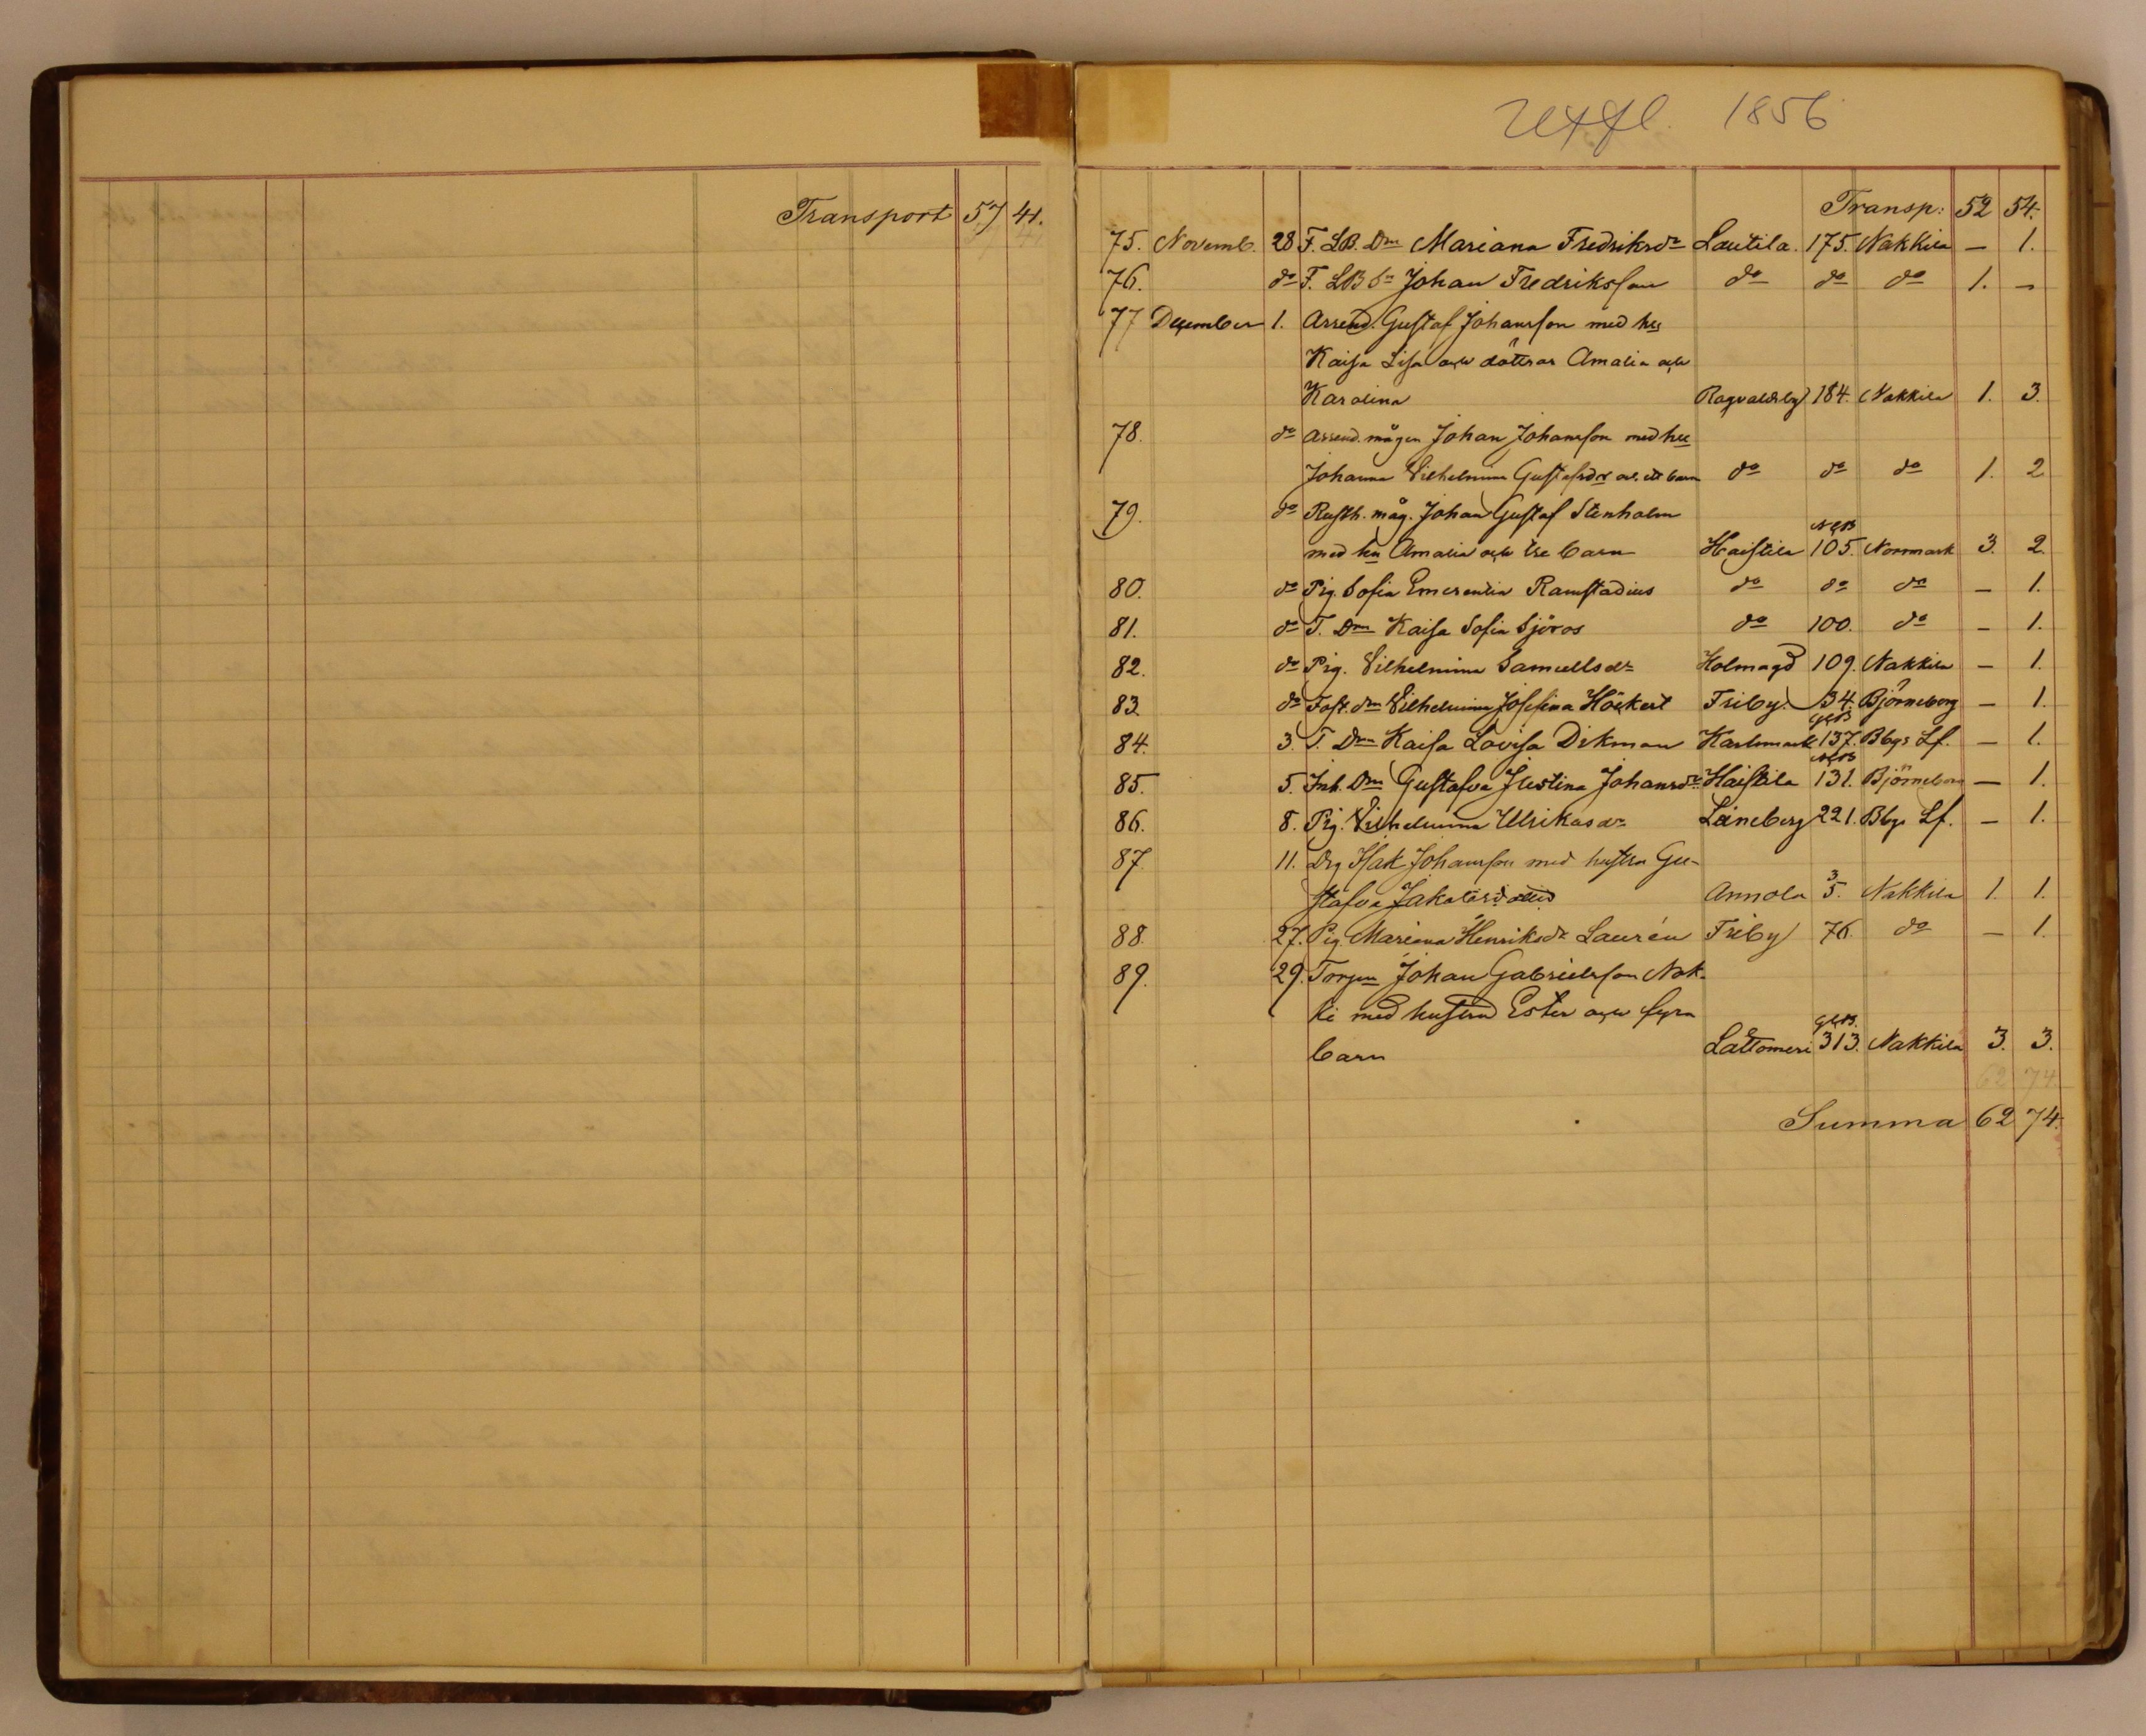 Transport 57 41.
Utfl. 1856
Transp: 52 54.
75. Novemb. 28 F. LB. Drn Mariana Fredriksdr Lautila. 175. Nakkila — 1.
76. do F. LB Sn Johan Fredriksson do do do 1. —
77 December 1. Arrend. Gustaf Johansson med hu
Kaisa Lisa och döttrar Amalia och
Karolina Ragvaldsby 184. Nakkila 1. 3.
78. do Arrend. mågen Johan Johansson med hu
Johanna Vilhelmina Gustafsdr o. ett barn do do do 1. 2
79. do Rusth. måg. Johan Gustaf Stenholm
med hu Amalia och tre barn Haistila NKB 105. Norrmark 3. 2.
80. do Pig. Sofia Emerentia Ramstadius do do do — 1.
81. do T. Drn Kaisa Sofia Sjöros do 100. do — 1.
82. do Pig. Vilhelmina Samuelsdr Holmagd 109. Nakkila — 1.
83 do Fost. drn Vilhelmina Josefina Höckert Friby. 34. Björneborg — 1.
84. 3. T. Drn Kaisa Lovisa Dikman Kaslmark 137. Bbgs Lf. — 1.
85. 5. Inh. Drn Gustafva Justina Johansdr Haistila 131. Björneborg — 1.
86. 8. Pig. Vilhelmina Ulrikasdr Läneberg 221. Bbgs Lf. — 1.
87 11. Drg Isak Johansson med hustru Gu-
stafva Jakobsdr Annola 35. Nakkila 1. 1.
88. 27. Pig Mariana Henriksdr Laurén Friby 76. do — 1.
89. 29. Torpn Johan Gabrielsson Nak-
ki med hustru Ester och fyra
barn Lattomeri 313. Nakkila 3. 3.
62 74
Summa 62 74.